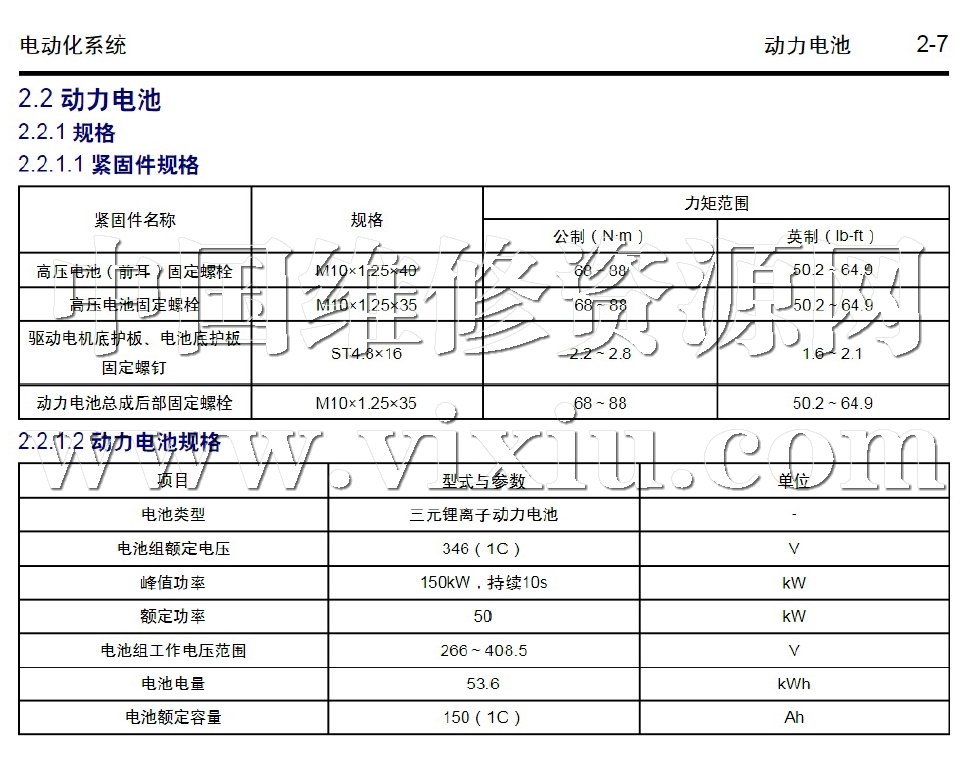 电动化系统 动力电池 2-7
2.2 动力电池
2.2.1 规格
2.2.1.1 紧固件规格
紧固件名称 规格 力矩范围
公制（N·m） 英制（lb-ft）
高压电池（前耳）固定螺栓 M10×1.25×40 68～88 50.2～64.9
高压电池固定螺栓 M10×1.25×35 68～88 50.2～64.9
驱动电机底护板、电池底护板
固定螺钉 ST4.8×16 2.2～2.8 1.6～2.1
动力电池总成后部固定螺栓 M10×1.25×35 68～88 50.2～64.9
中国维修资源网
2.2.1.2 动力电池规格
www.vixiu.com
项目 型式与参数 单位
电池类型 三元锂离子动力电池 -
电池组额定电压 346（1C） V
峰值功率 150kW，持续10s kW
额定功率 50 kW
电池组工作电压范围 266～408.5 V
电池电量 53.6 kWh
电池额定容量 150（1C） Ah